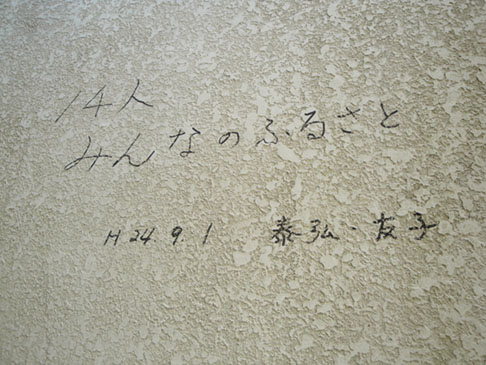 14人
みんなのふるさと
H 24. 9. 1 泰弘・友子